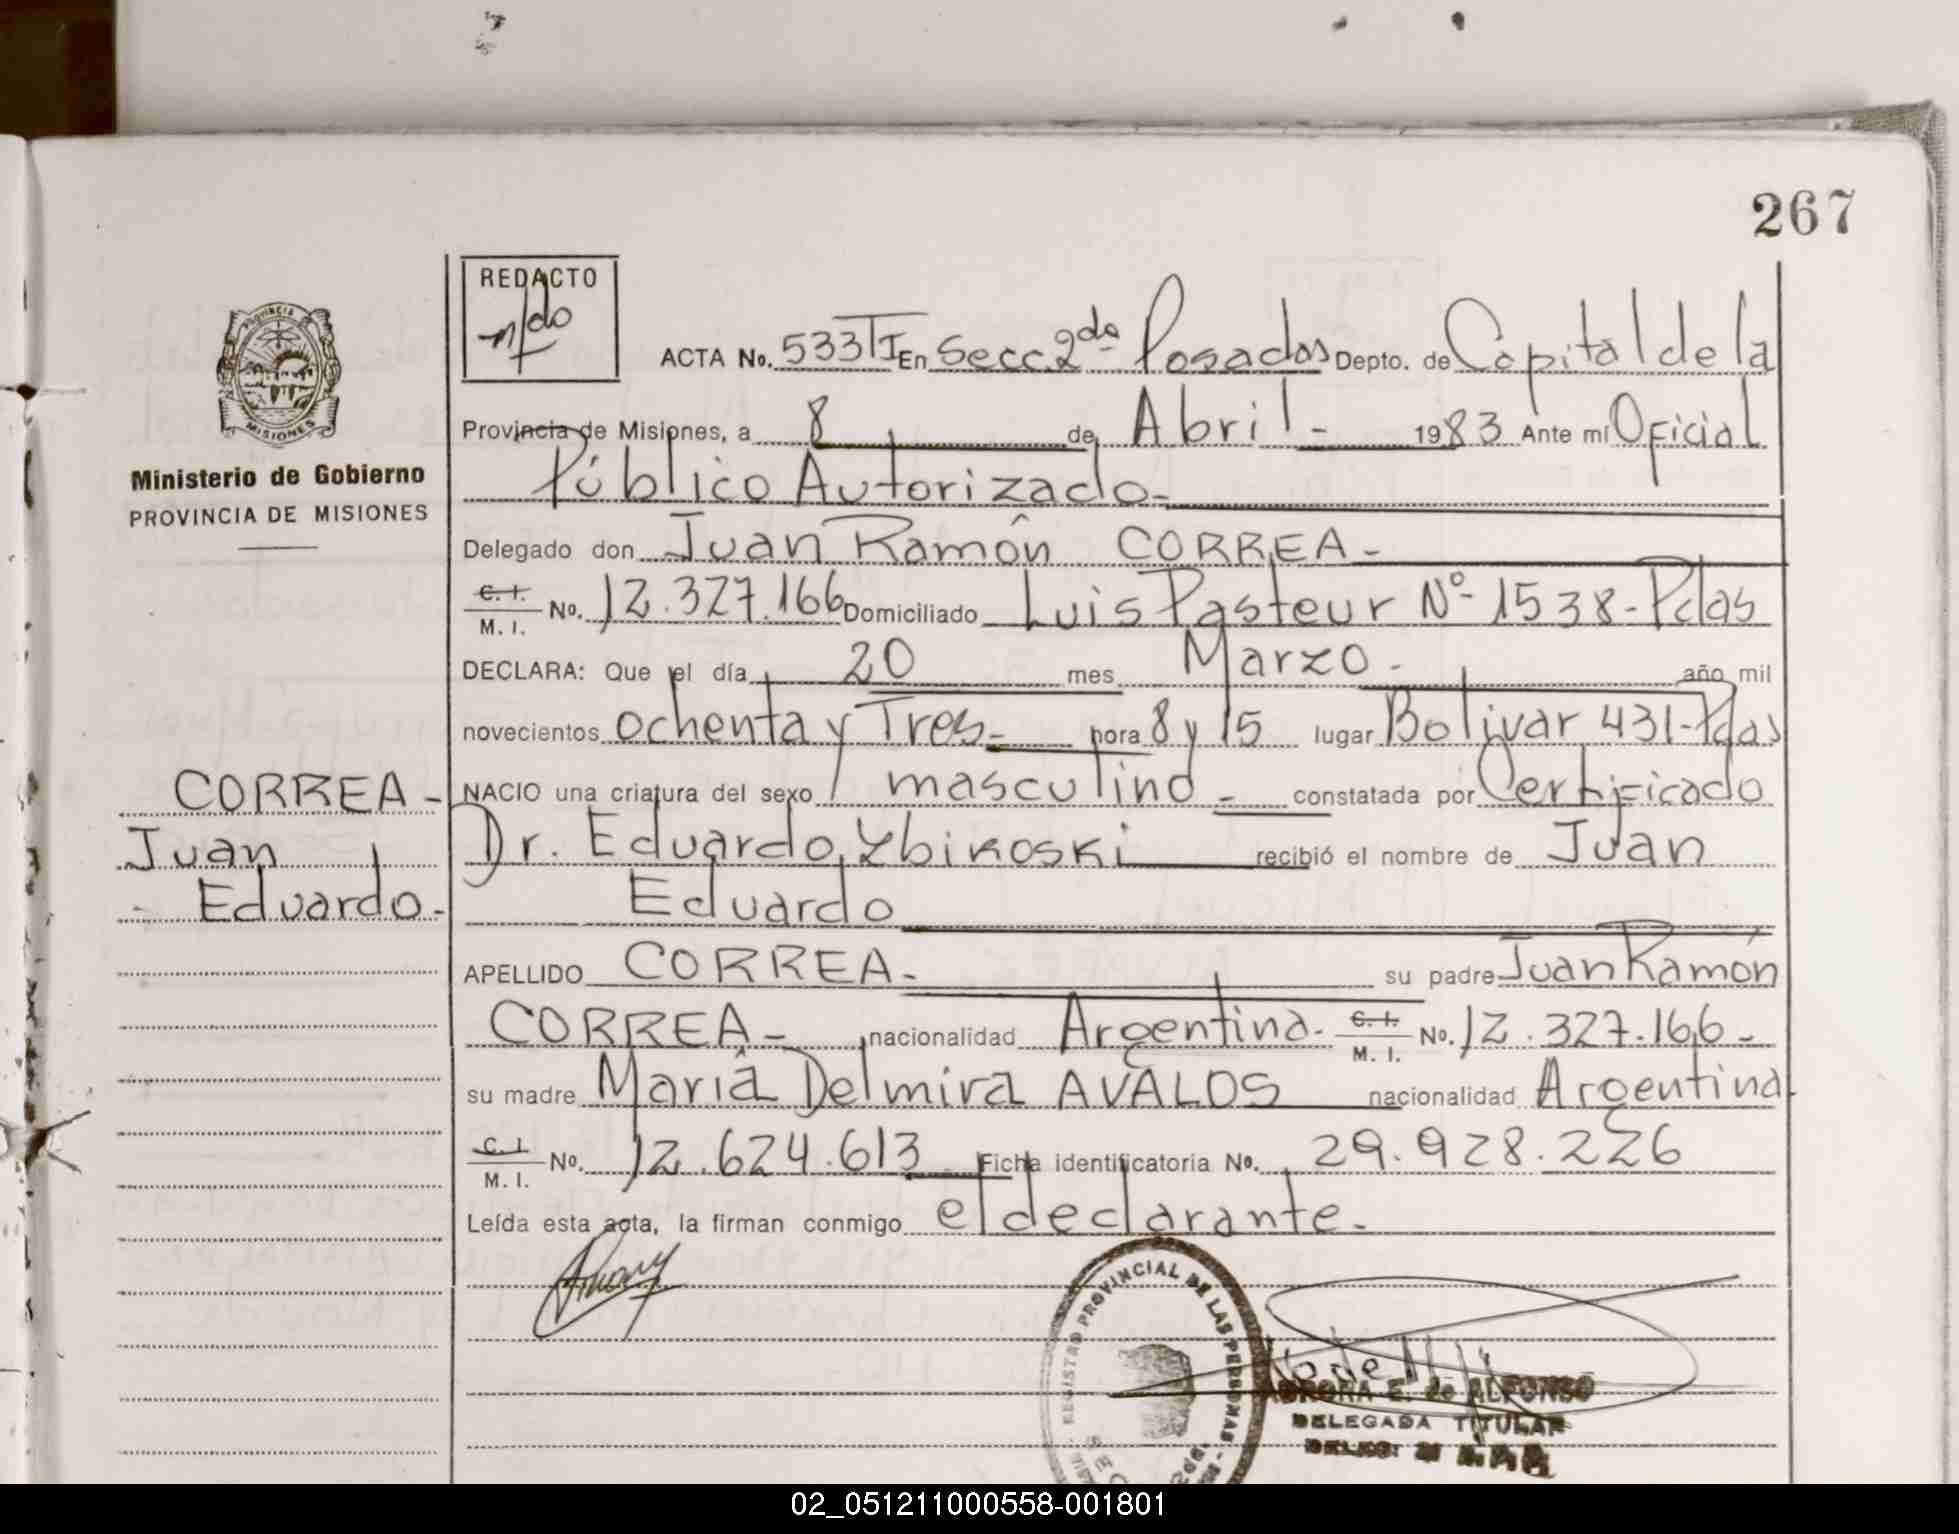 267
REDACTO
PROVINCIA
MISIONES
Ministerio de Gobierno
PROVINCIA DE MISIONES
ACTA No. 533 TI En Secc. 2da Posadas Depto. de Capital de la
Provincia de Misiones, a 8 de Abril - 1983 Ante mí Oficial
Público Autorizado -
Delegado don Juan Ramón CORREA -
C. I. M. I. No. 12.327.166 Domiciliado Luis Pasteur Nº 1538 - Pdas
DECLARA: Que el día 20 mes Marzo - año mil
novecientos ochenta y Tres - hora 8 y 15 lugar Bolivar 431 - Pdas
NACIO una criatura del sexo masculino - constatada por Certificado
Dr. Eduardo Zbikoski recibió el nombre de Juan
Eduardo
CORREA -
Juan
Eduardo -
APELLIDO CORREA - su padre Juan Ramón
CORREA - nacionalidad Argentina - C. I. M. I. No. 12.327.166 -
su madre María Delmira AVALOS nacionalidad Argentina
C. I. M. I. No. 12.624.613 Ficha identificatoria No. 29.928.226
Leída esta acta, la firman conmigo el declarante -
REGISTRO PROVINCIAL DE LAS PERSONAS
E. de ALFONSO
DELEGADA TITULAR
02_051211000558-001801